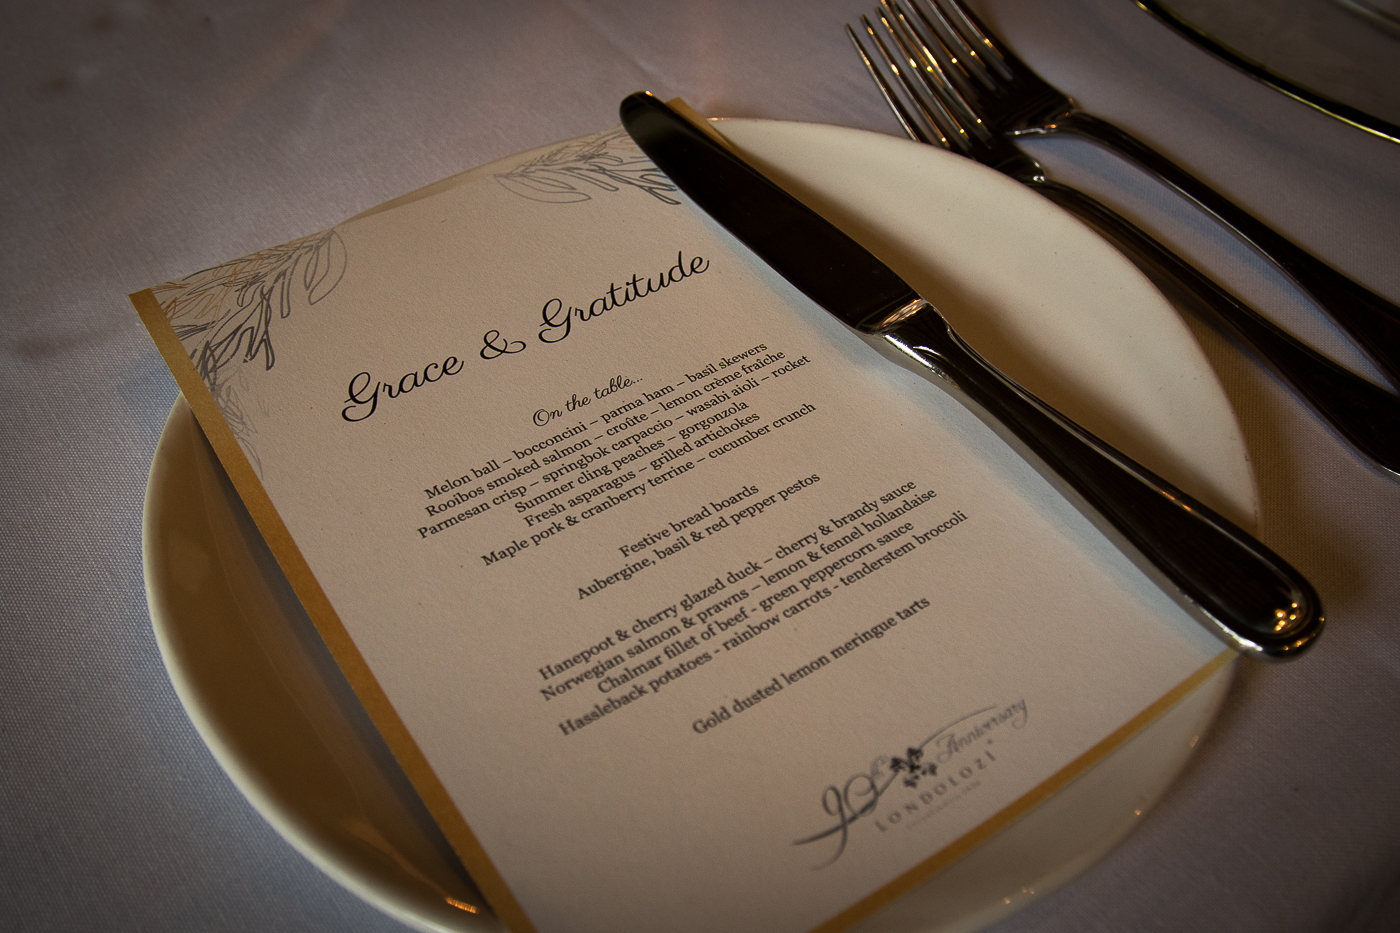 Grace & Gratitude
On the table...
Melon ball – bocconcini – parma ham – basil skewers
Rooibos smoked salmon – croûte – lemon crème fraîche
Parmesan crisp – springbok carpaccio – wasabi aioli – rocket
Summer cling peaches – gorgonzola
Fresh asparagus – grilled artichokes
Maple pork & cranberry terrine – cucumber crunch
Festive bread boards
Aubergine, basil & red pepper pestos
Hanepoot & cherry glazed duck – cherry & brandy sauce
Norwegian salmon & prawns – lemon & fennel hollandaise
Chalmar fillet of beef - green peppercorn sauce
Hassleback potatoes - rainbow carrots - tenderstem broccoli
Gold dusted lemon meringue tarts
Anniversary
LONDOLOZI®